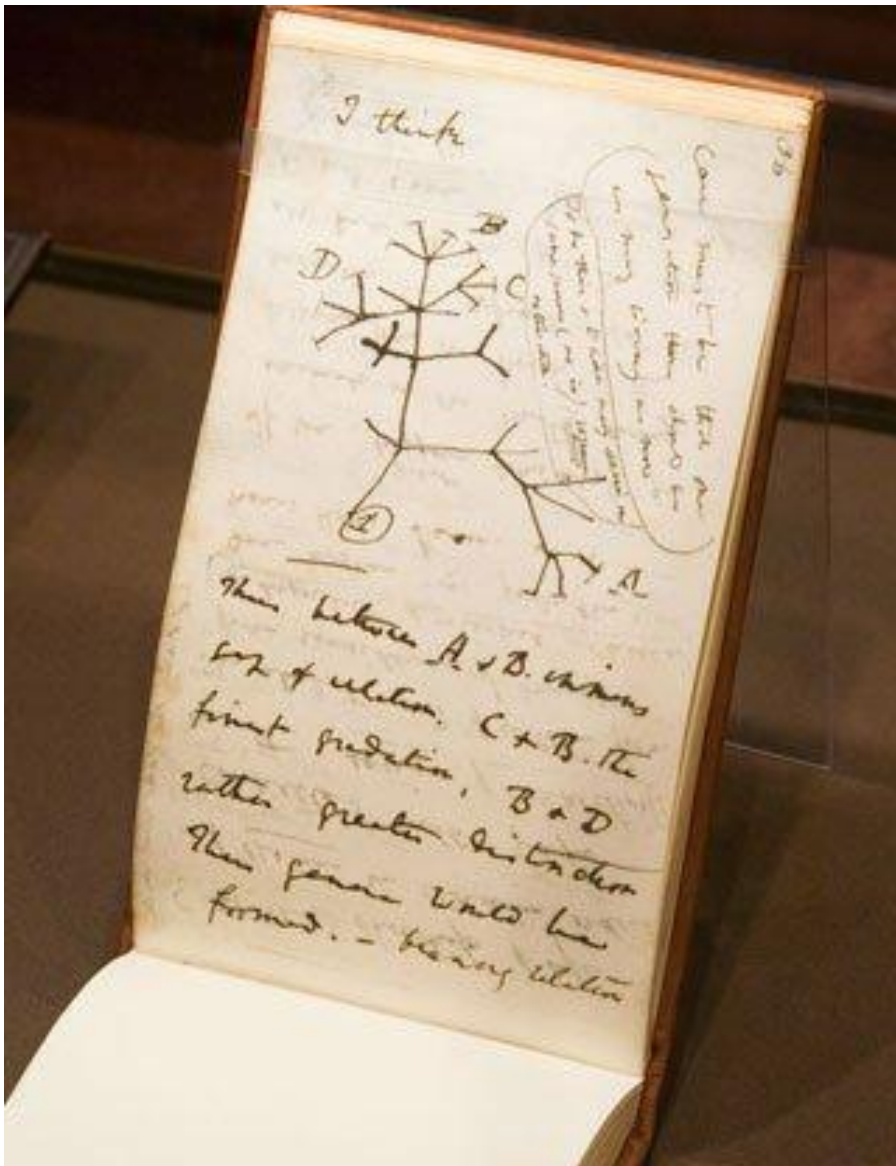 I think
B
D
C
A
1
36
Case must be that one
generation then should be
as many living as now
To do this & to have many species in
same genus (as is) requires
extinction
Thus between A & B. immens
gap of relation. C & B. the
finest gradation, B & D
rather greater distinction
Thus genera would be
formed. — bearing relation